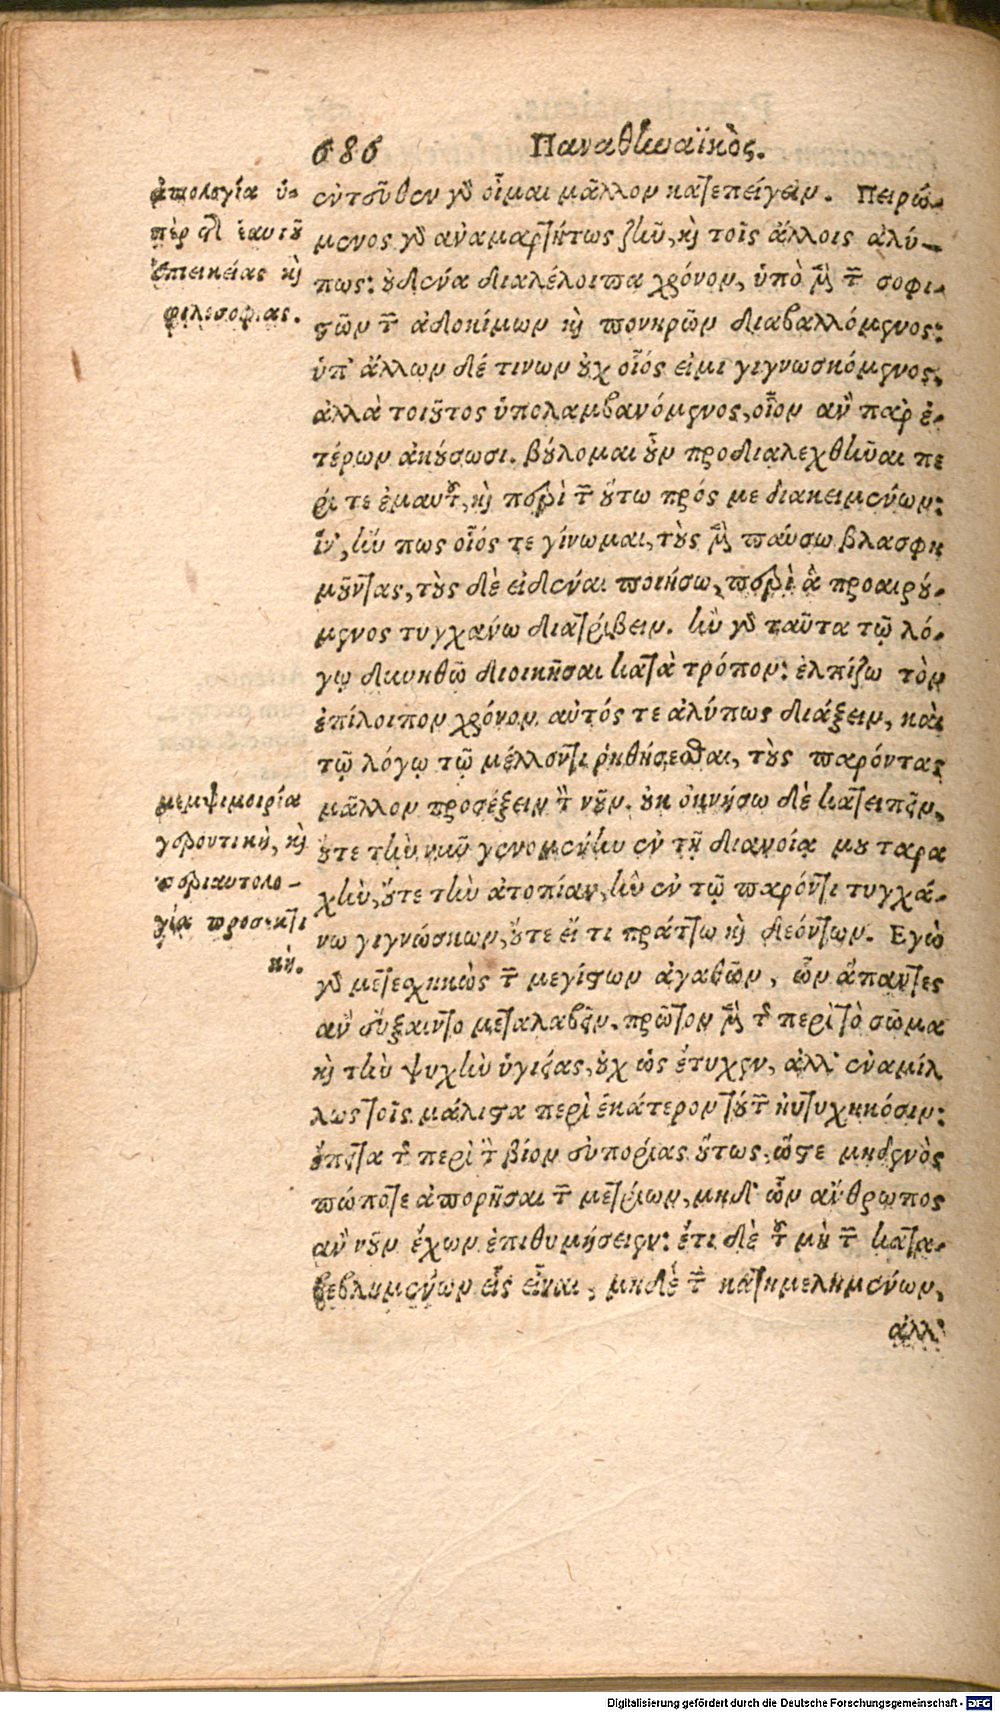 686
Παναθηναϊκὸς.
ἀπολογία ὑ-
πὲρ τῆς ἑαυτοῦ
ἐπιεικείας καὶ
φιλοσοφίας.
ἐντεῦθεν γὰρ οἶμαι μᾶλλον κατεπείγειν. Πειρώ-
μενος γὰρ ἀναμαρτήτως ζῆν, καὶ τοῖς ἄλλοις ἀλύ-
πως: οὐδένα διαλέλοιπα χρόνον, ὑπὸ μὲν τῶν σοφι-
στῶν τῶν ἀδοκίμων καὶ πονηρῶν διαβαλλόμενος:
ὑπ' ἄλλων δέ τινων οὐχ οἷός εἰμι γιγνωσκόμενος,
ἀλλὰ τοιοῦτος ὑπολαμβανόμενος, οἷον ἂν παρ' ἑ-
τέρων ἀκούσωσι. βούλομαι οὖν προδιαλεχθῆναι πε
ρί τε ἐμαυτοῦ, καὶ περὶ τῶν οὕτω πρός με διακειμένων:
ἵν', ἤν πως οἷός τε γίνωμαι, τοὺς μὲν παύσω βλασφη
μοῦντας, τοὺς δὲ εἰδέναι ποιήσω, περὶ ἃ προαιρού-
μενος τυγχάνω διατρίβειν. ἢν γὰρ ταῦτα τῷ λό-
γῳ δυνηθῶ διοικῆσαι κατὰ τρόπον: ἐλπίζω τὸν
ἐπίλοιπον χρόνον αὐτός τε ἀλύπως διάξειν, καὶ
τῷ λόγῳ τῷ μέλλοντι ῥηθήσεσθαι, τοὺς παρόντας
μᾶλλον προσέξειν τὸν νοῦν. οὐκ ὀκνήσω δὲ κατειπεῖν,
οὔτε τὴν νῦν γενομένην ἐν τῇ διανοίᾳ μου ταρα
χὴν, οὔτε τὴν ἀτοπίαν, ἣν ἐν τῷ παρόντι τυγχά-
νω γιγνώσκων, οὔτε εἴ τι πράττω καὶ δεόντων. Εγὼ
γὰρ μετεσχηκὼς τῶν μεγίστων ἀγαθῶν, ὧν ἅπαντες
ἂν εὔξαιντο μεταλαβεῖν, πρῶτον μὲν τῆς περὶ τὸ σῶμα
καὶ τὴν ψυχὴν ὑγιείας, οὐχ ὡς ἔτυχεν, ἀλλ' ἐναμίλ
λως τοῖς μάλιστα περὶ ἑκάτερον τούτων ηὐτυχηκόσιν:
ἔπειτα τῆς περὶ τὸν βίον εὐπορίας οὕτως, ὥστε μηδενὸς
πώποτε ἀπορῆσαι τῶν μετρίων, μηδ' ὧν ἄνθρωπος
ἂν νοῦν ἔχων ἐπιθυμήσειεν: ἔτι δὲ τοῦ μὴ τῶν κατα-
βεβλημένων εἷς εἶναι, μηδὲ τῶν κατημελημένων,
ἀλλ'
μεμψιμοιρία
γεροντικὴ, καὶ
περιαυτολο-
γία προσεκτι
κή.
Digitalisierung gefördert durch die Deutsche Forschungsgemeinschaft - DFG